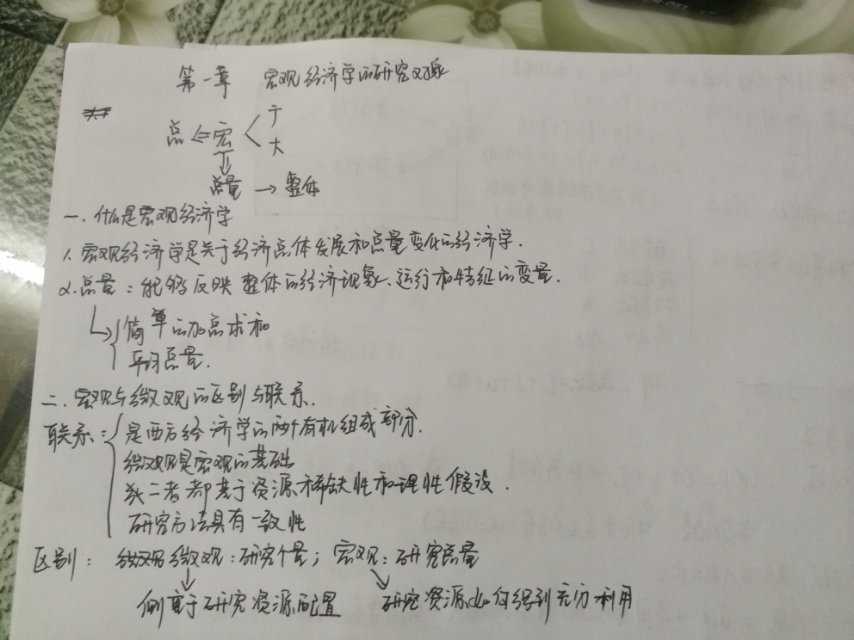 第一章 宏观经济学的研究对象
总 ⇐ 宏 < 于
大
⇓
总量 → 整体
一. 什么是宏观经济学
1. 宏观经济学是关于经济总体发展和总量变化的经济学.
2. 总量: 能够反映整体的经济现象、运行和特征的变量.
↳ { 简单的加总求和
平均总量.
二. 宏观与微观的区别与联系.
联系: { 是西方经济学的两个有机组成部分.
微观是宏观的基础
二者都基于资源稀缺性和理性假设.
研究方法具有一致性
区别: 微观: 研究个量; 宏观: 研究总量
侧重于研究资源配置 研究资源如何得到充分利用